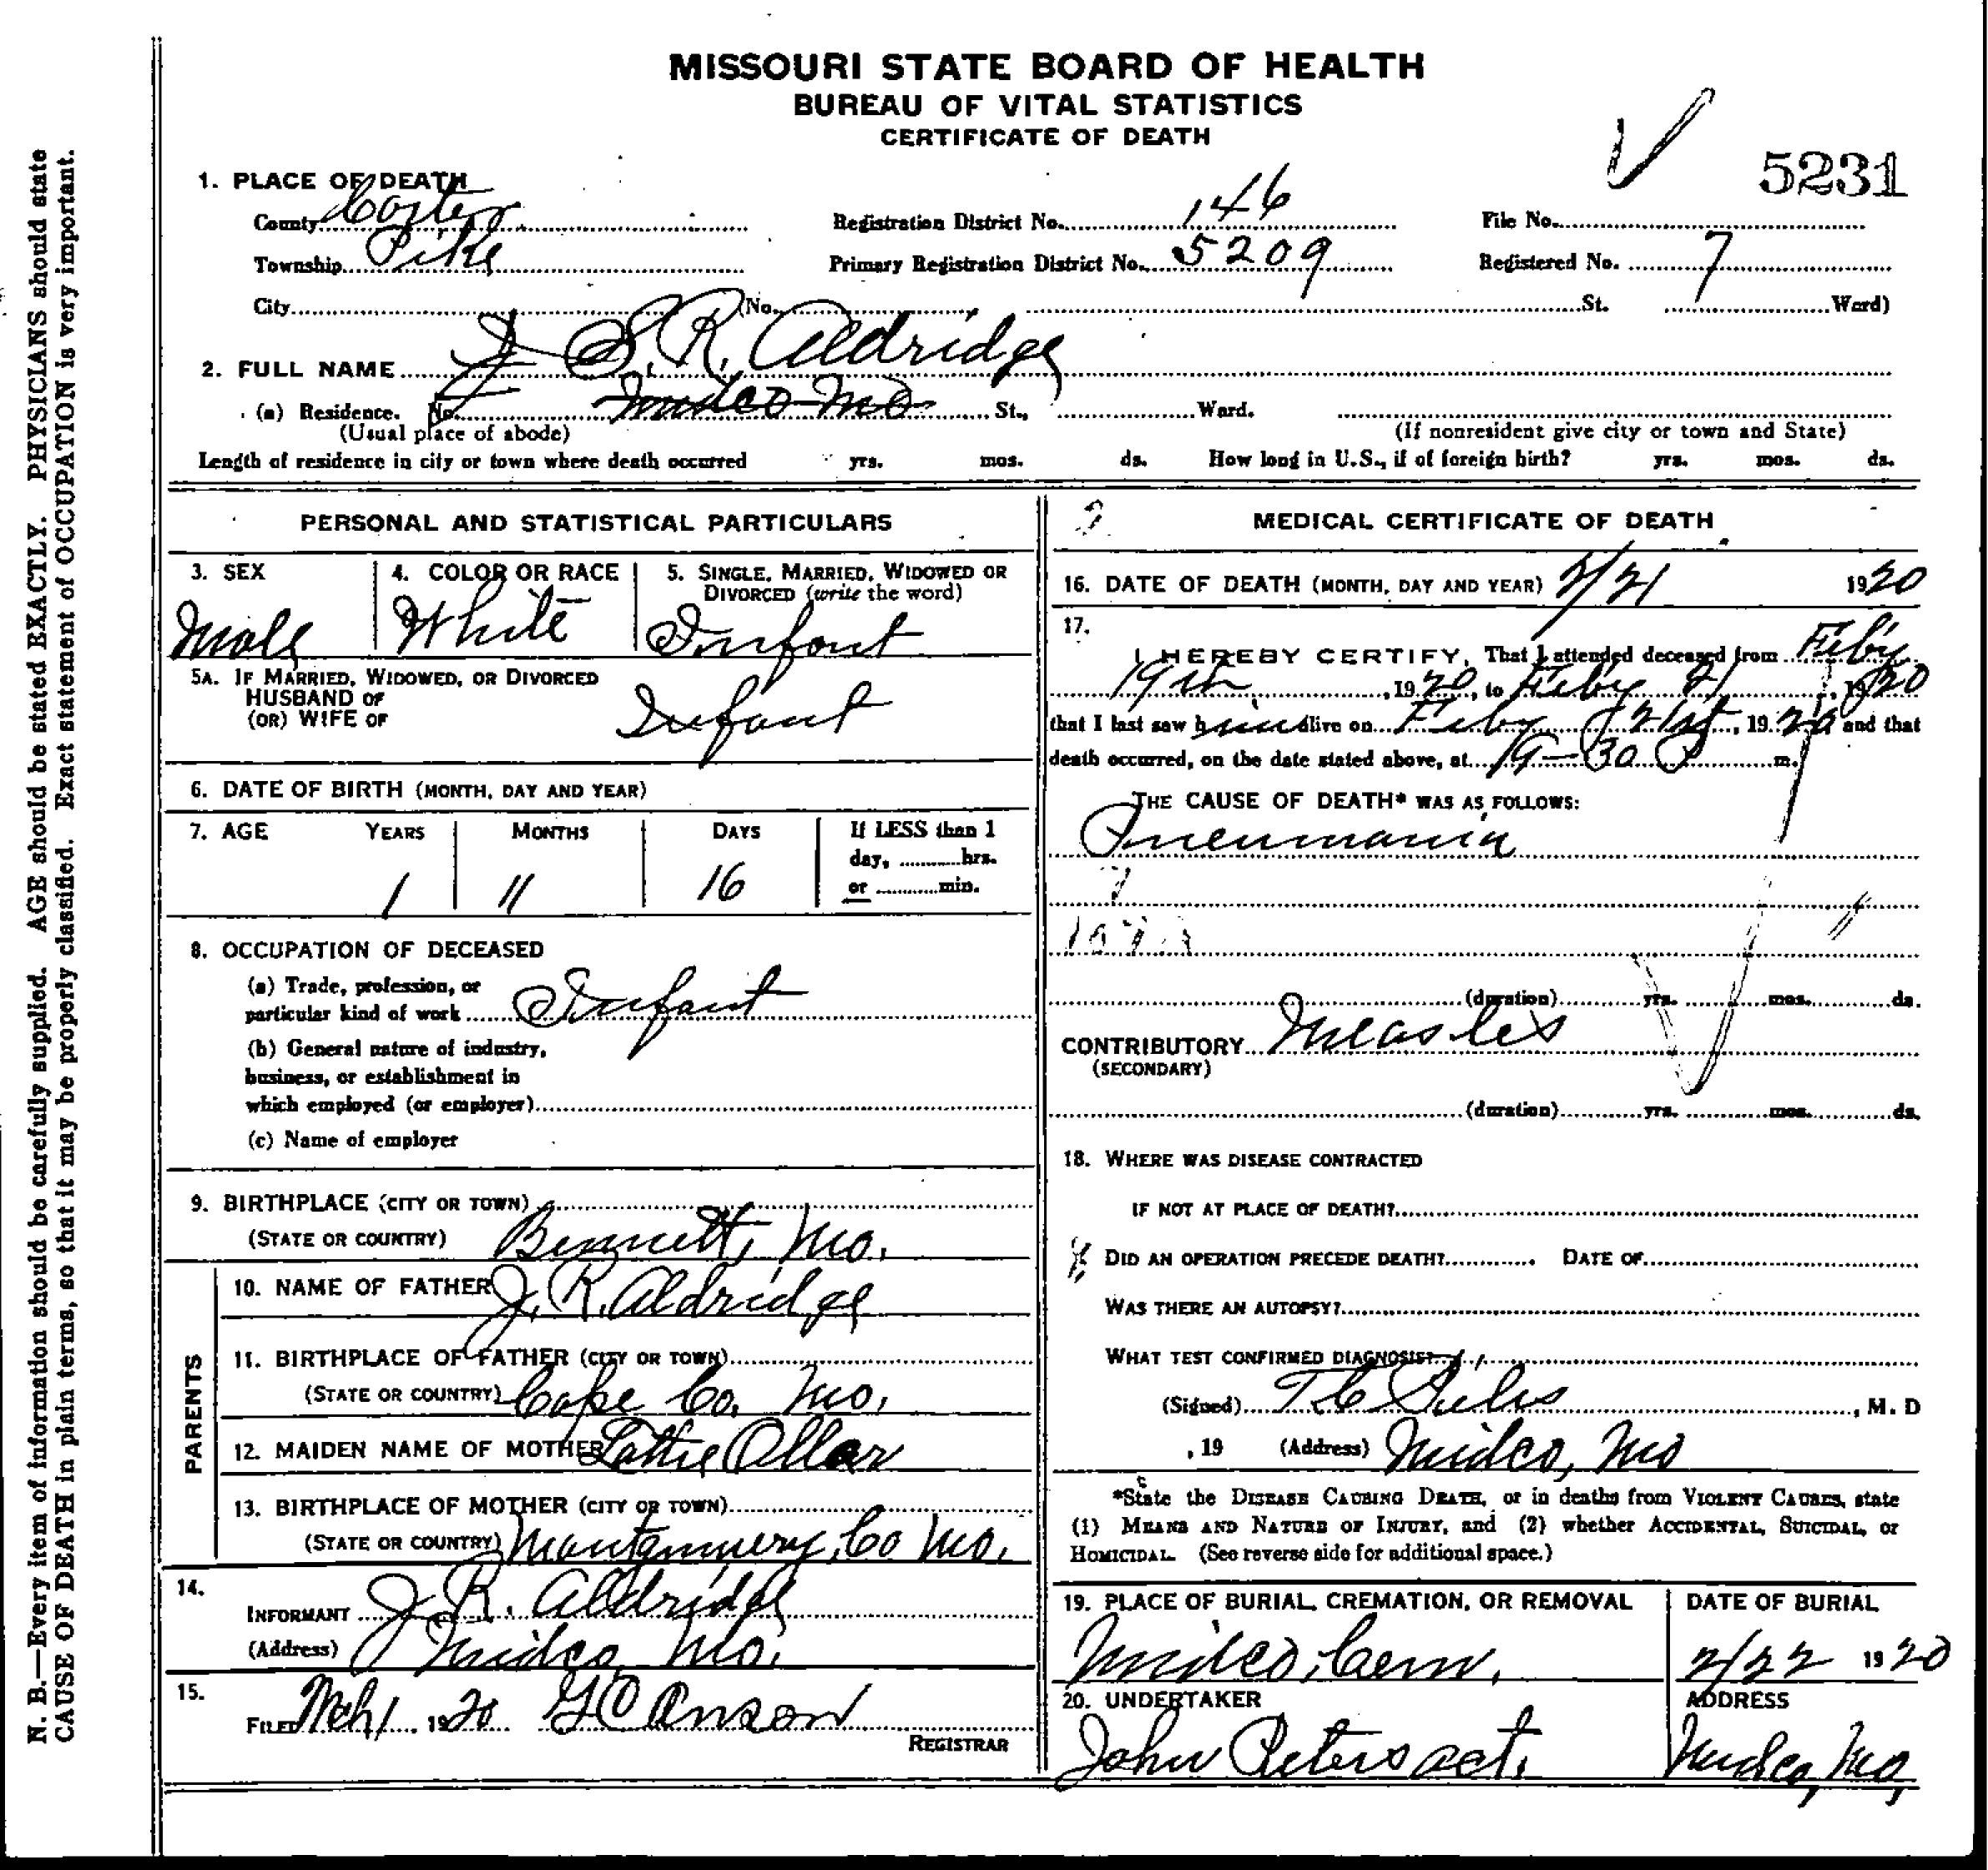 MISSOURI STATE BOARD OF HEALTH
BUREAU OF VITAL STATISTICS
CERTIFICATE OF DEATH
5231
1. PLACE OF DEATH
County Carter Registration District No. 146 File No.
Township Pike Primary Registration District No. 5209 Registered No. 7
City (No. St. Ward)
2. FULL NAME J S. R. Aldridge
(a) Residence. No. Midco Mo St., Ward.
(Usual place of abode) (If nonresident give city or town and State)
Length of residence in city or town where death occurred yrs. mos. ds. How long in U.S., if of foreign birth? yrs. mos. ds.
PERSONAL AND STATISTICAL PARTICULARS
3. SEX 4. COLOR OR RACE 5. SINGLE, MARRIED, WIDOWED OR
DIVORCED (write the word)
Male White Infant
5A. IF MARRIED, WIDOWED, OR DIVORCED
HUSBAND OF
(OR) WIFE OF Infant
6. DATE OF BIRTH (MONTH, DAY AND YEAR)
7. AGE YEARS MONTHS DAYS If LESS than 1
day, hrs.
1 11 16 or min.
8. OCCUPATION OF DECEASED
(a) Trade, profession, or
particular kind of work Infant
(b) General nature of industry,
business, or establishment in
which employed (or employer)
(c) Name of employer
9. BIRTHPLACE (CITY OR TOWN)
(STATE OR COUNTRY) Bennett, Mo.
PARENTS
10. NAME OF FATHER J. R. Aldridge
11. BIRTHPLACE OF FATHER (CITY OR TOWN)
(STATE OR COUNTRY) Cape Co. Mo.
12. MAIDEN NAME OF MOTHER Lottie Ollar
13. BIRTHPLACE OF MOTHER (CITY OR TOWN)
(STATE OR COUNTRY) Montgomery, Co Mo.
14.
INFORMANT J. R. Aldridge
(Address) Midco Mo.
15.
FILED Mch 1 1920 G C Anson
REGISTRAR
MEDICAL CERTIFICATE OF DEATH
16. DATE OF DEATH (MONTH, DAY AND YEAR) 2/21 1920
17.
I HEREBY CERTIFY, That I attended deceased from Feby
19th, 1920, to Feby 21, 1920
that I last saw him alive on Feby 21st, 1920 and that
death occurred, on the date stated above, at 30 P m.
THE CAUSE OF DEATH* WAS AS FOLLOWS:
Pneumonia
(duration) yrs. mos. ds.
CONTRIBUTORY Measles
(SECONDARY)
(duration) yrs. mos. ds.
18. WHERE WAS DISEASE CONTRACTED
IF NOT AT PLACE OF DEATH?
DID AN OPERATION PRECEDE DEATH? DATE OF
WAS THERE AN AUTOPSY?
WHAT TEST CONFIRMED DIAGNOSIS?
(Signed) T C , M. D
, 19 (Address) Midco, Mo
*State the DISEASE CAUSING DEATH, or in deaths from VIOLENT CAUSES, state
(1) MEANS AND NATURE OF INJURY, and (2) whether ACCIDENTAL, SUICIDAL, or
HOMICIDAL. (See reverse side for additional space.)
19. PLACE OF BURIAL, CREMATION, OR REMOVAL DATE OF BURIAL
Midco, Cem. 2/22 1920
20. UNDERTAKER ADDRESS
John Peters act. Midco, Mo,
N. B.—Every item of information should be carefully supplied. AGE should be stated EXACTLY. PHYSICIANS should state
CAUSE OF DEATH in plain terms, so that it may be properly classified. Exact statement of OCCUPATION is very important.